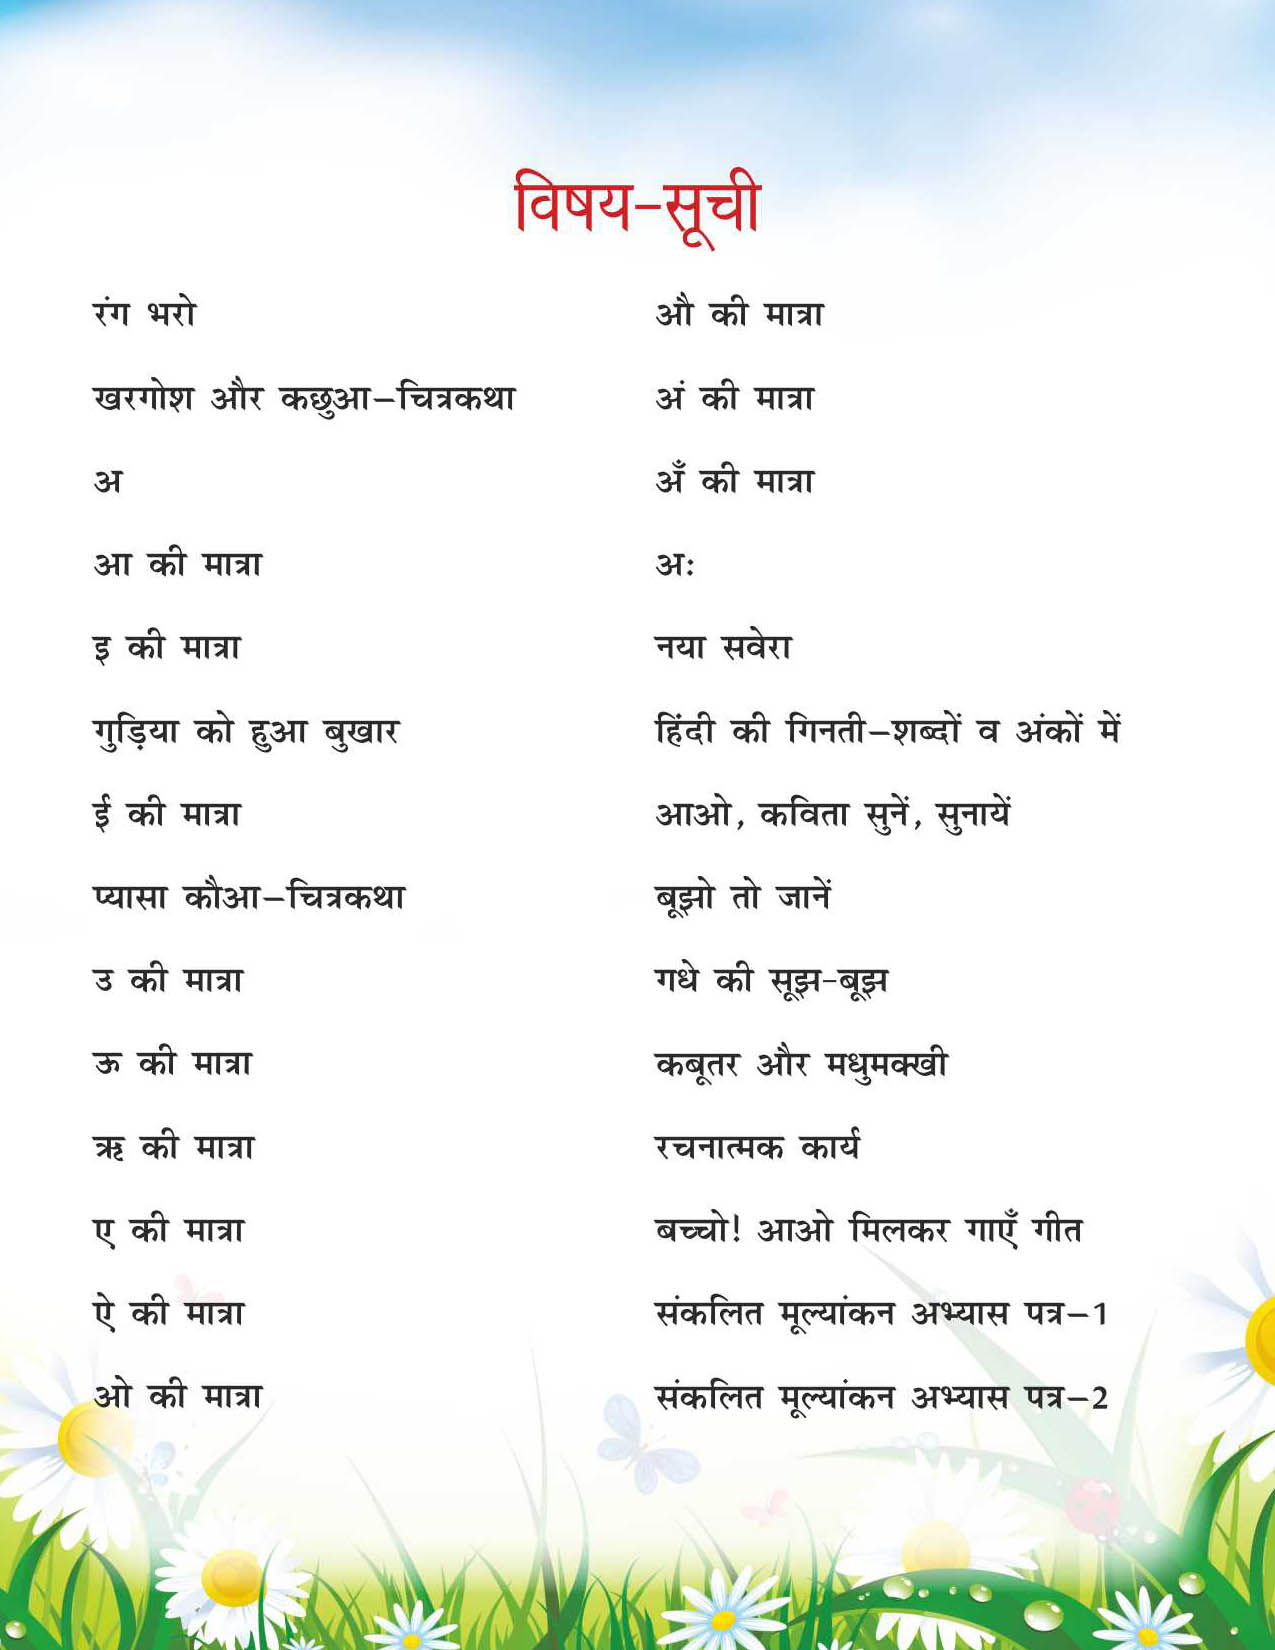 विषय-सूची
रंग भरो
खरगोश और कछुआ–चित्रकथा
अ
आ की मात्रा
इ की मात्रा
गुड़िया को हुआ बुखार
ई की मात्रा
प्यासा कौआ–चित्रकथा
उ की मात्रा
ऊ की मात्रा
ऋ की मात्रा
ए की मात्रा
ऐ की मात्रा
ओ की मात्रा
औ की मात्रा
अं की मात्रा
अँ की मात्रा
अः
नया सवेरा
हिंदी की गिनती–शब्दों व अंकों में
आओ, कविता सुनें, सुनायें
बूझो तो जानें
गधे की सूझ-बूझ
कबूतर और मधुमक्खी
रचनात्मक कार्य
बच्चो! आओ मिलकर गाएँ गीत
संकलित मूल्यांकन अभ्यास पत्र–1
संकलित मूल्यांकन अभ्यास पत्र–2